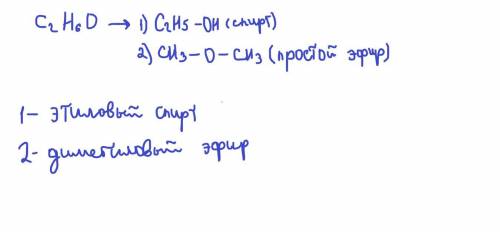 C₂H₆O → 1) C₂H₅-OH (спирт)
2) CH₃-O-CH₃ (простой эфир)
1- этиловый спирт
2- диметиловый эфир